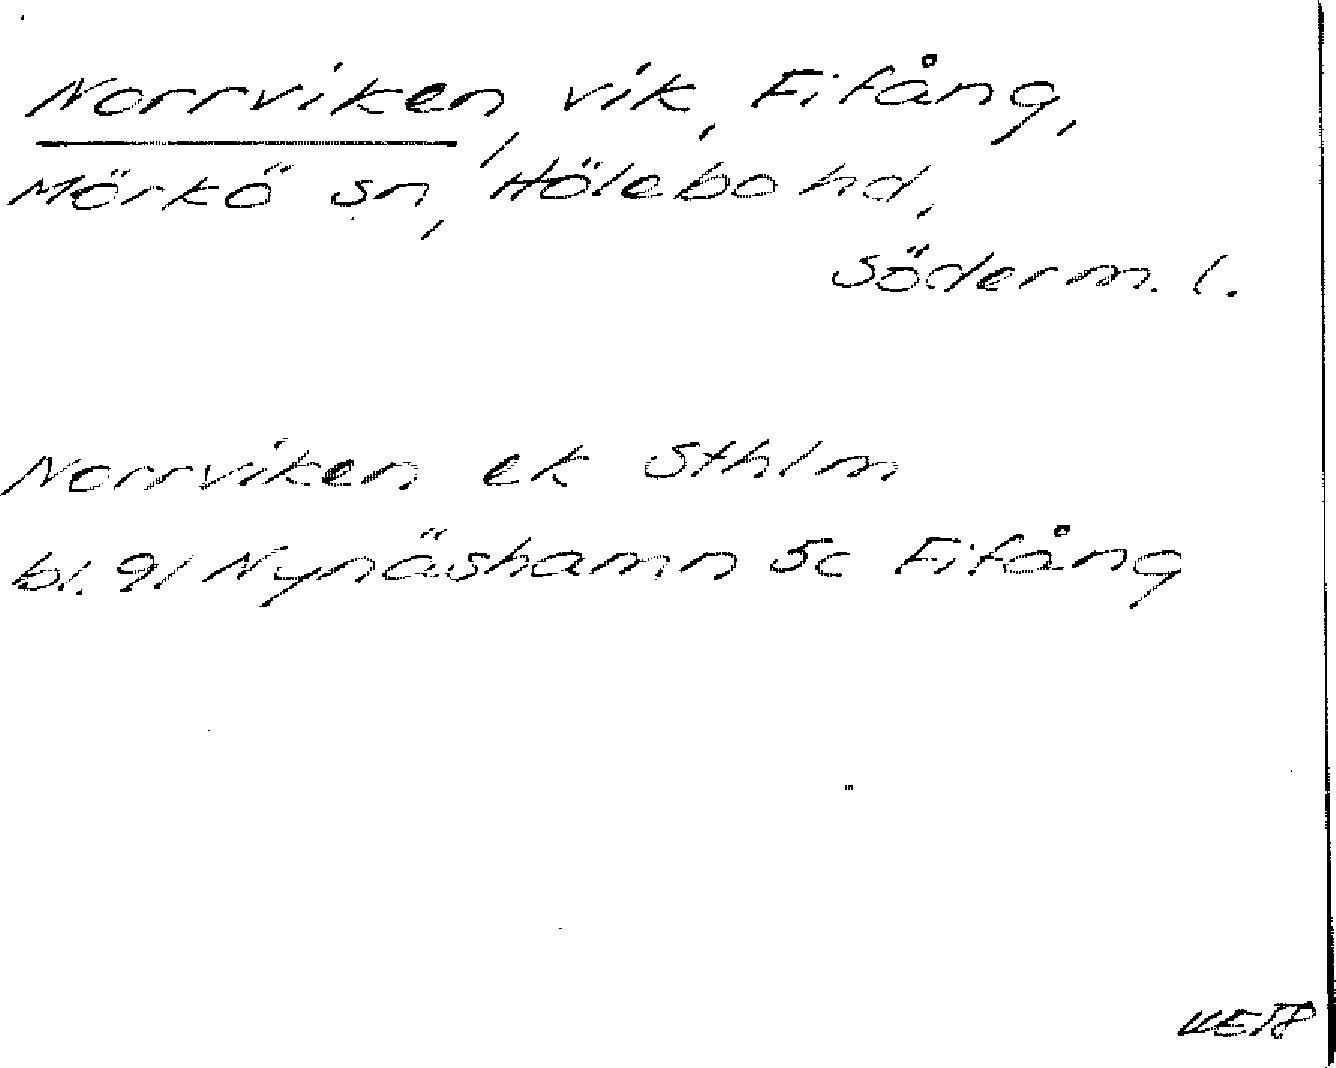 Norrviken, vik, Fifång,
Mörkö sn, Hölebo hd,
Söderm. l.
Norrviken ek Sthlm
bl. 91 Nynäshamn 5c Fifång